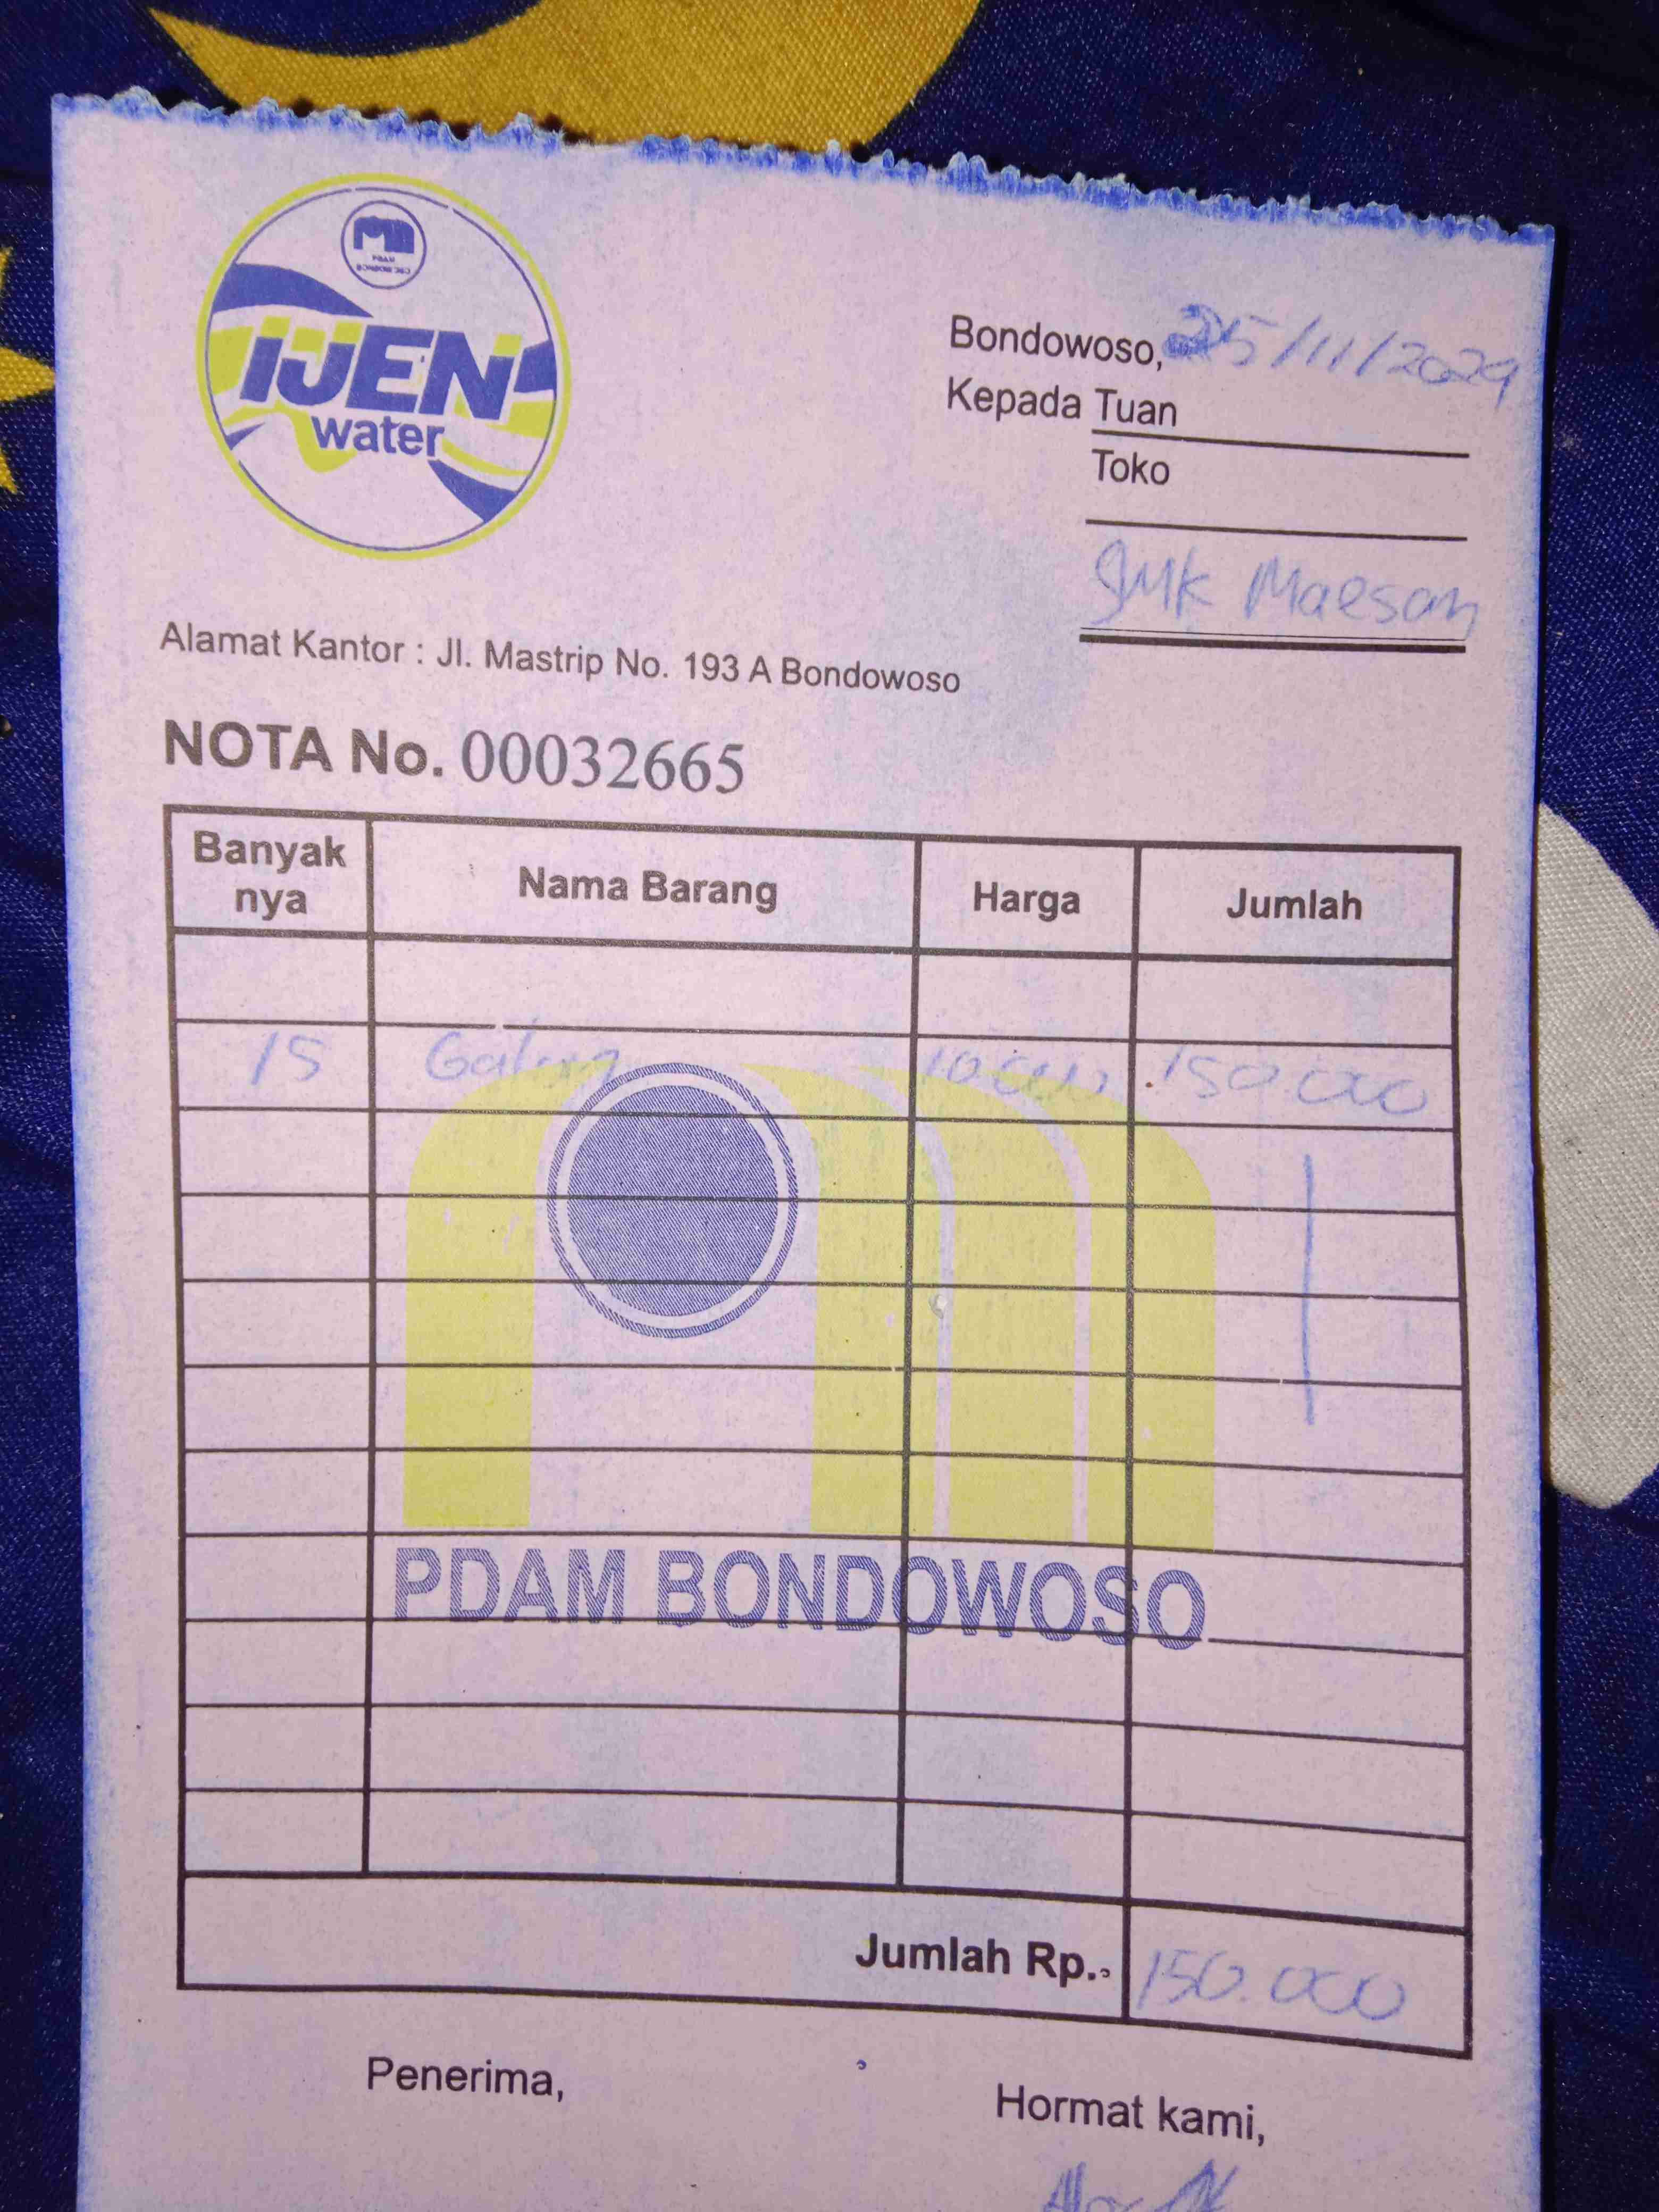 PDAM
BONDOWOSO
iJEN
water
Bondowoso, 25/11/2024
Kepada Tuan
Toko
SMK Maesan
Alamat Kantor : Jl. Mastrip No. 193 A Bondowoso
NOTA No. 00032665
Banyak nya Nama Barang Harga Jumlah
15 Galon 10.000 150.000
PDAM BONDOWOSO
Jumlah Rp. 150.000
Penerima,
Hormat kami,